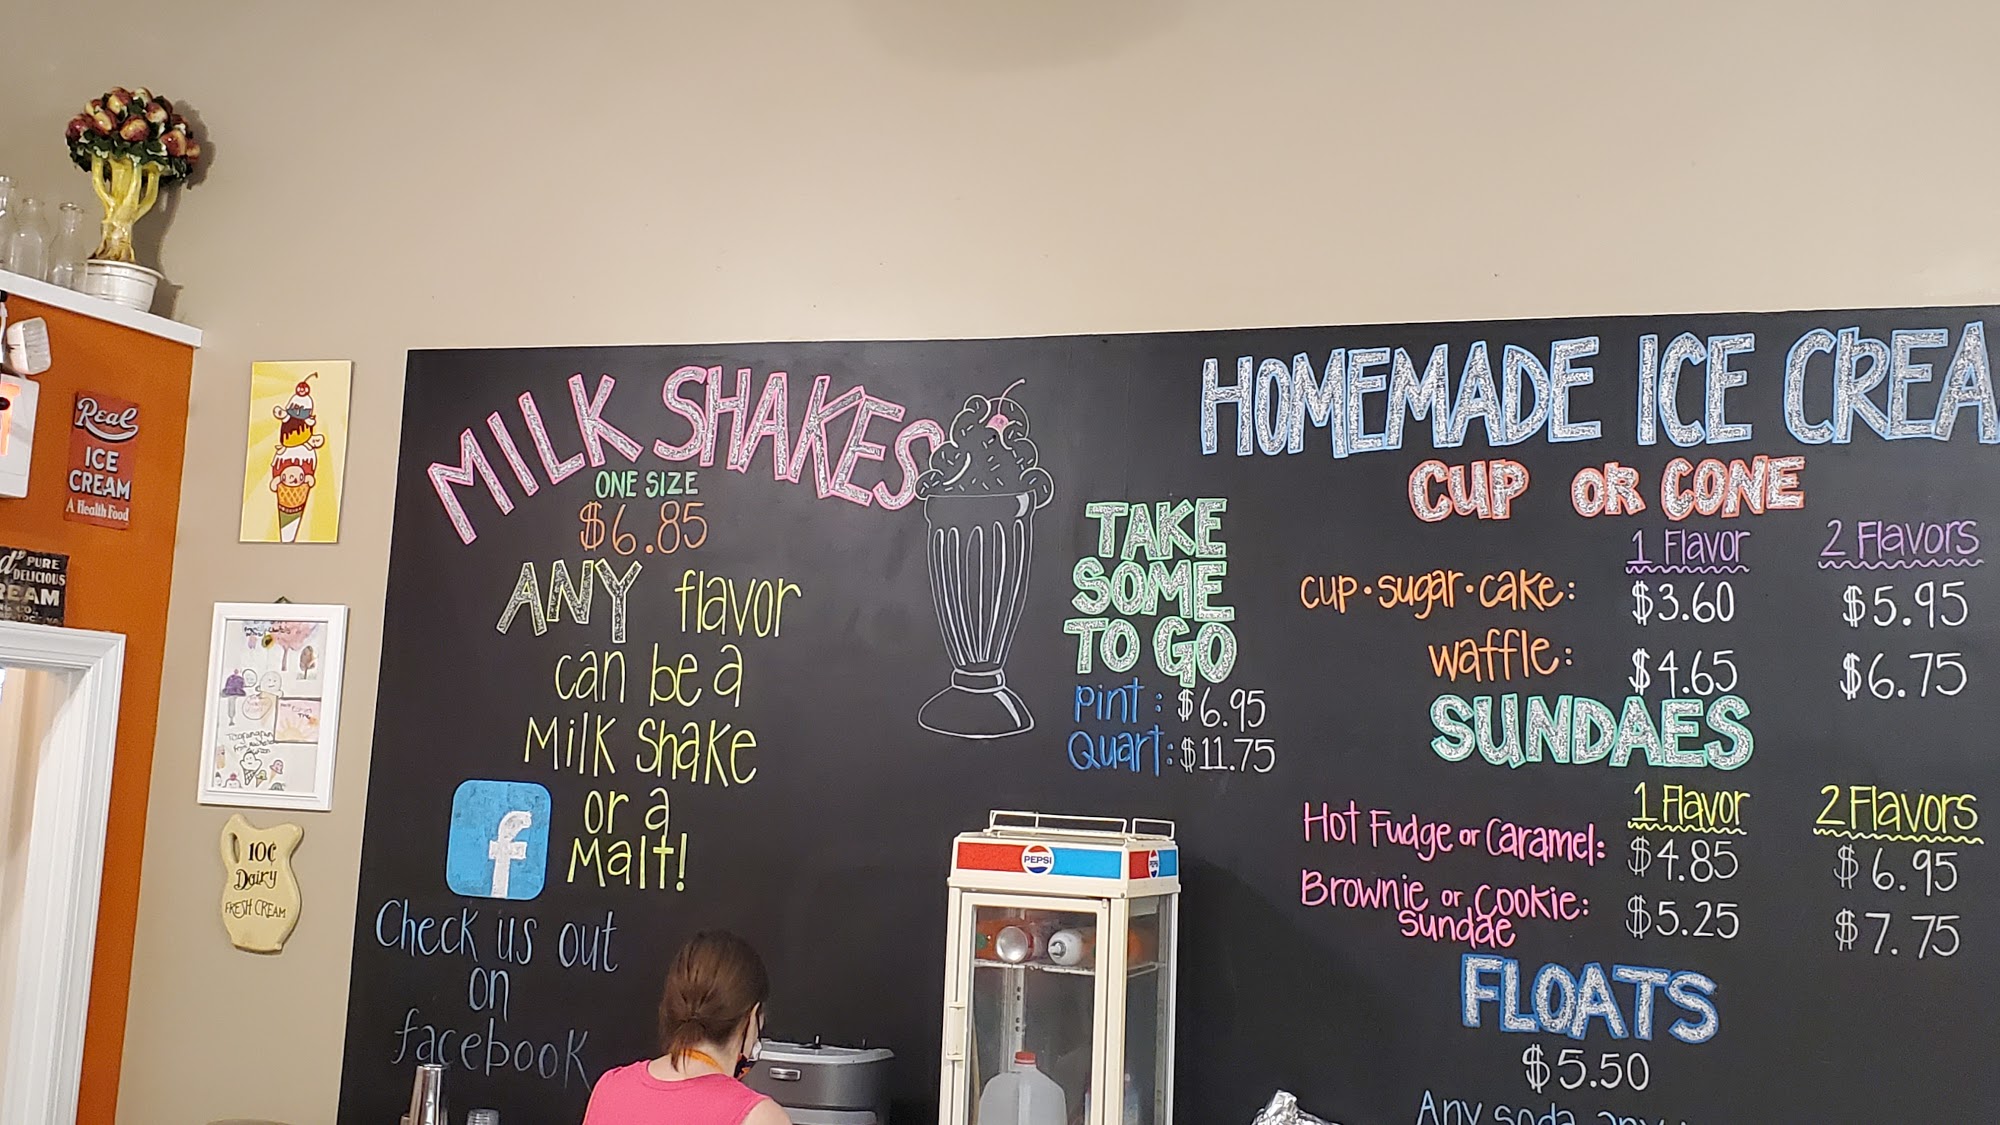 Real
ICE
CREAM
A Health Food
PURE
DELICIOUS
10¢
Dairy
FRESH CREAM
MILK SHAKES
ONE SIZE
$6.85
ANY flavor
can be a
Milk Shake
or a
Malt!
f
Check us out
on
facebook
TAKE
SOME
TO GO
Pint: $6.95
Quart: $11.75
PEPSI
PEPSI
HOMEMADE ICE CREA
CUP OR CONE
1 Flavor 2 Flavors
cup·sugar·cake: $3.60 $5.95
waffle: $4.65 $6.75
SUNDAES
1 Flavor 2 Flavors
Hot Fudge or Caramel: $4.85 $6.95
Brownie or Cookie: $5.25 $7.75
sundae
FLOATS
$5.50
Any soda any